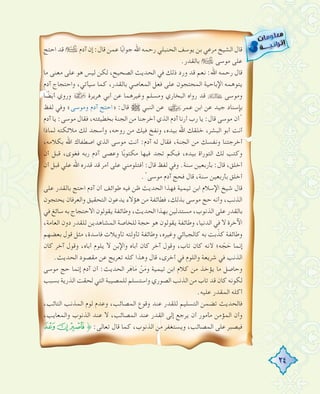 معلومات إثرائية
قال الشيخ مرعي بن يوسف الحنبلي رحمه الله جوابًا عمن قال: إن آدم ﷺ قد احتج
على موسى ﷺ بالقدر.
قال رحمه الله: نعم قد ورد ذلك في الحديث الصحيح، لكن ليس هو على معنى ما
يتوهمه الإباحية المحتجون على فعل المعاصي بالقدر، كما سيأتي، واحتجاج آدم
وموسى قد رواه البخاري ومسلم وغيرهما عن أبي هريرة وروي أيضًا
بإسناد جيد عن ابن عمر عن النبي ﷺ قال: «احتج آدم وموسى» وفي لفظ
أن موسى قال: يا رب أرنا آدم الذي أخرجنا من الجنة بخطيئته، فقال موسى: يا آدم
أنت أبو البشر، خلقك الله بيده، ونفخ فيك من روحه، وأسجد لك ملائكته لماذا
أخرجتنا ونفسك من الجنة، فقال له آدم: أنت موسى الذي اصطفاك الله بكلامه،
وكتب لك التوراة بيده، فبكم تجد فيها مكتوبًا وعصى آدم ربه فغوى، قبل أن
أخلق، قال: بأربعين سنة. وفي لفظ قال: أفتلومني على أمر قد قدره الله علي قبل أن
أخلق بأربعين سنة، قال فحج آدم موسى".
قال شيخ الإسلام ابن تيمية فهذا الحديث ظن فيه طوائف أن آدم احتج بالقدر على
الذنب، وأنه حج موسى بذلك، فطائفة من هؤلاء يدعون التحقيق والعرفان يحتجون
بالقدر على الذنوب، مستدلين بهذا الحديث، وطائفة يقولون الاحتجاج به سائغ في
الآخرة لا في الدنيا، وطائفة يقولون هو حجة للخاصة المشاهدين للقدر دون العامة،
وطائفة كذبت به كالجبائي وغيره، وطائفة تأولته تأويلات فاسدة، مثل قول بعضهم
إنما حجه؛ لأنه كان تاب، وقول آخر كان أباه والإبن لا يلوم أباه، وقول آخر كان
الذنب في شريعة واللوم في أخرى، قال وهذا كله تعريج عن مقصود الحديث.
وحاصل ما يؤخذ من كلام ابن تيمية ومن ماهر الحديث: أن آدم إنما حج موسى
لكونه كان قد تاب من الذنب الصوري واستسلم للمصيبة التي لحقت الذرية بسبب
أكله المقدر عليه.
فالحديث تضمن التسليم للقدر عند وقوع المصائب، وعدم لوم المذنب التائب،
وأن المؤمن مأمور أن يرجع إلى القدر عند المصائب، لا عند الذنوب والمعايب،
فيصبر على المصائب، ويستغفر من الذنوب، كما قال تعالى: ﴿فَاصْبِرْ إِنَّ وَعْدَ
٢٤